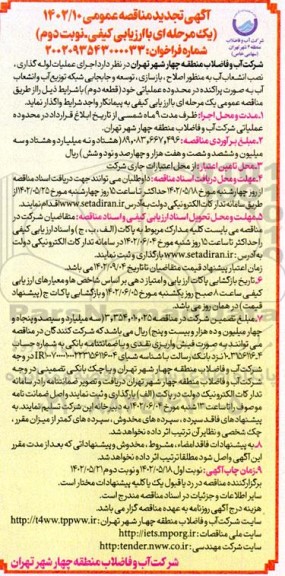 شرکت آب و فاضلاب
منطقه ۴ شهر تهران
(سهامی خاص)
آگهی تجدید مناقصه عمومی ۱۴۰۲/۱۰
(یک مرحله ای با ارزیابی کیفی-نوبت دوم)
شماره فراخوان: ۲۰۰۲۰۹۳۵۴۳۰۰۰۰۳۳
شرکت آب و فاضلاب منطقه چهار شهر تهران در نظر دارد اجرای عملیات لوله گذاری،
نصب انشعاب آب به منظور اصلاح، بازسازی، توسعه و جابجایی شبکه توزیع آب و انشعاب
آب به صورت پراکنده در محدوده عملیاتی خود (قطعه دوم) با شرایط ذیل را از طریق
مناقصه عمومی یک مرحله ای با ارزیابی کیفی به پیمانکار واجد شرایط واگذار نماید.
۱. مدت و محل اجرا: ظرف مدت ۹ ماه شمسی از تاریخ ابلاغ قرارداد در محدوده
عملیاتی شرکت آب و فاضلاب منطقه چهار شهر تهران.
۲. مبلغ برآوردی مناقصه: ۸۹،۰۸۳،۶۶۷،۴۹۶ (هشتاد و نه میلیارد و هشتاد و سه
میلیون و ششصد و شصت و هفت هزار و چهارصد و نود و شش) ریال
۳. محل تامین اعتبار: از محل اعتبارات جاری شرکت
۴. مهلت و محل دریافت اسناد مناقصه: داوطلبان می توانند جهت دریافت اسناد مناقصه
از روز چهارشنبه مورخ ۱۴۰۲/۵/۱۸ حداکثر تا ساعت ۱۵ روز چهارشنبه مورخ ۱۴۰۲/۵/۲۵ از
طریق سامانه تدارکات الکترونیکی دولت به آدرس www.setadiran.ir اقدام نمایند.
۵. مهلت و محل تحویل اسناد ارزیابی کیفی و اسناد مناقصه: متقاضیان شرکت در
مناقصه می بایست کلیه مدارک مربوط به پاکات (الف، ب، ج) و اسناد ارزیابی کیفی
را حداکثر تا ساعت ۱۵ روز شنبه مورخ ۱۴۰۲/۰۶/۰۴ در سامانه تدارکات الکترونیکی دولت
به آدرس: www.setadiran.ir بارگذاری و ثبت نمایند.
زمان اعتبار پیشنهاد قیمت متقاضیان تا تاریخ ۱۴۰۲/۰۹/۰۴ می باشد.
۶. تاریخ بازگشایی پاکات ارزیابی و امتیازدهی بر اساس شاخص ها و معیارهای ارزیابی
کیفی ساعت ۸ صبح روز یکشنبه مورخ ۱۴۰۲/۰۶/۰۵ و بازگشایی پاکات ج (پیشنهاد
قیمت) در همان روز می باشد.
۷. مبلغ تضمین شرکت در مناقصه ۳،۳۵۴،۰۱۰،۰۲۵ (سه میلیارد و سیصد و پنجاه و
چهار میلیون و ده هزار و بیست و پنج) ریال می باشد که شرکت کنندگان در مناقصه
می توانند به صورت فیش واریزی نقدی و یا ضمانتنامه بانکی به شماره حساب
نزد بانک رسالت با شناسه شبای
منطقه چهار شهر تهران و یا چک بانکی تضمینی در وجه
شرکت آب و فاضلاب منطقه چهار شهر تهران دریافت و تصویر ضمانتنامه را در سامانه
تدارکات الکترونیک دولت در پاکت (الف) بارگذاری و ثبت نمایند و اصل ضمانت نامه
موصوف را تا ساعت ۱۳ شنبه مورخ ۱۴۰۲/۰۶/۰۴ به دبیرخانه این شرکت تحویل نمایند. به
پیشنهاد های فاقد سپرده، سپرده های مخدوش، سپرده های کمتر از میزان مقرر،
چک شخصی و نظایر آن ترتیب اثر داده نخواهد شد.
۸. به پیشنهادات فاقد امضاء، مشروط، مخدوش و پیشنهاداتی که بعد از مدت مقرر
این آگهی واصل شود مطلقا ترتیب اثر داده نخواهد شد.
۹. زمان چاپ آگهی: نوبت اول ۱۴۰۲/۰۵/۱۸ و نوبت دوم ۱۴۰۲/۰۵/۲۱
برگزار کننده مناقصه در رد یا قبول یک یا کلیه پیشنهادات مختار است.
سایر اطلاعات و جزئیات در اسناد مناقصه مندرج است.
هزینه درج آگهی روزنامه به عهده مناقصه گزار می باشد.
سایت شرکت آب و فاضلاب منطقه چهار شهر تهران: http://t4ww.tppww.ir
سایت ملی مناقصات: http://iets.mporg.ir
سایت شرکت مهندسی: http://tender.nww.co.ir
شرکت آب و فاضلاب منطقه چهار شهر تهران